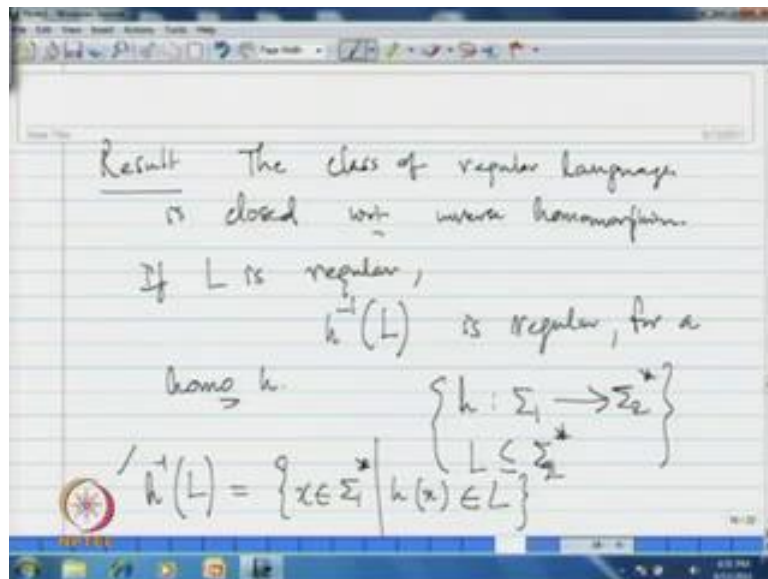 Result The class of regular language
is closed wrt inverse homomorphism.
If L is regular,
h⁻¹(L) is regular, for a
homo h.
{ h : Σ₁ → Σ₂*
L ⊆ Σ₂* }
h⁻¹(L) = {x ∈ Σ₁* | h(x) ∈ L}
NPTEL